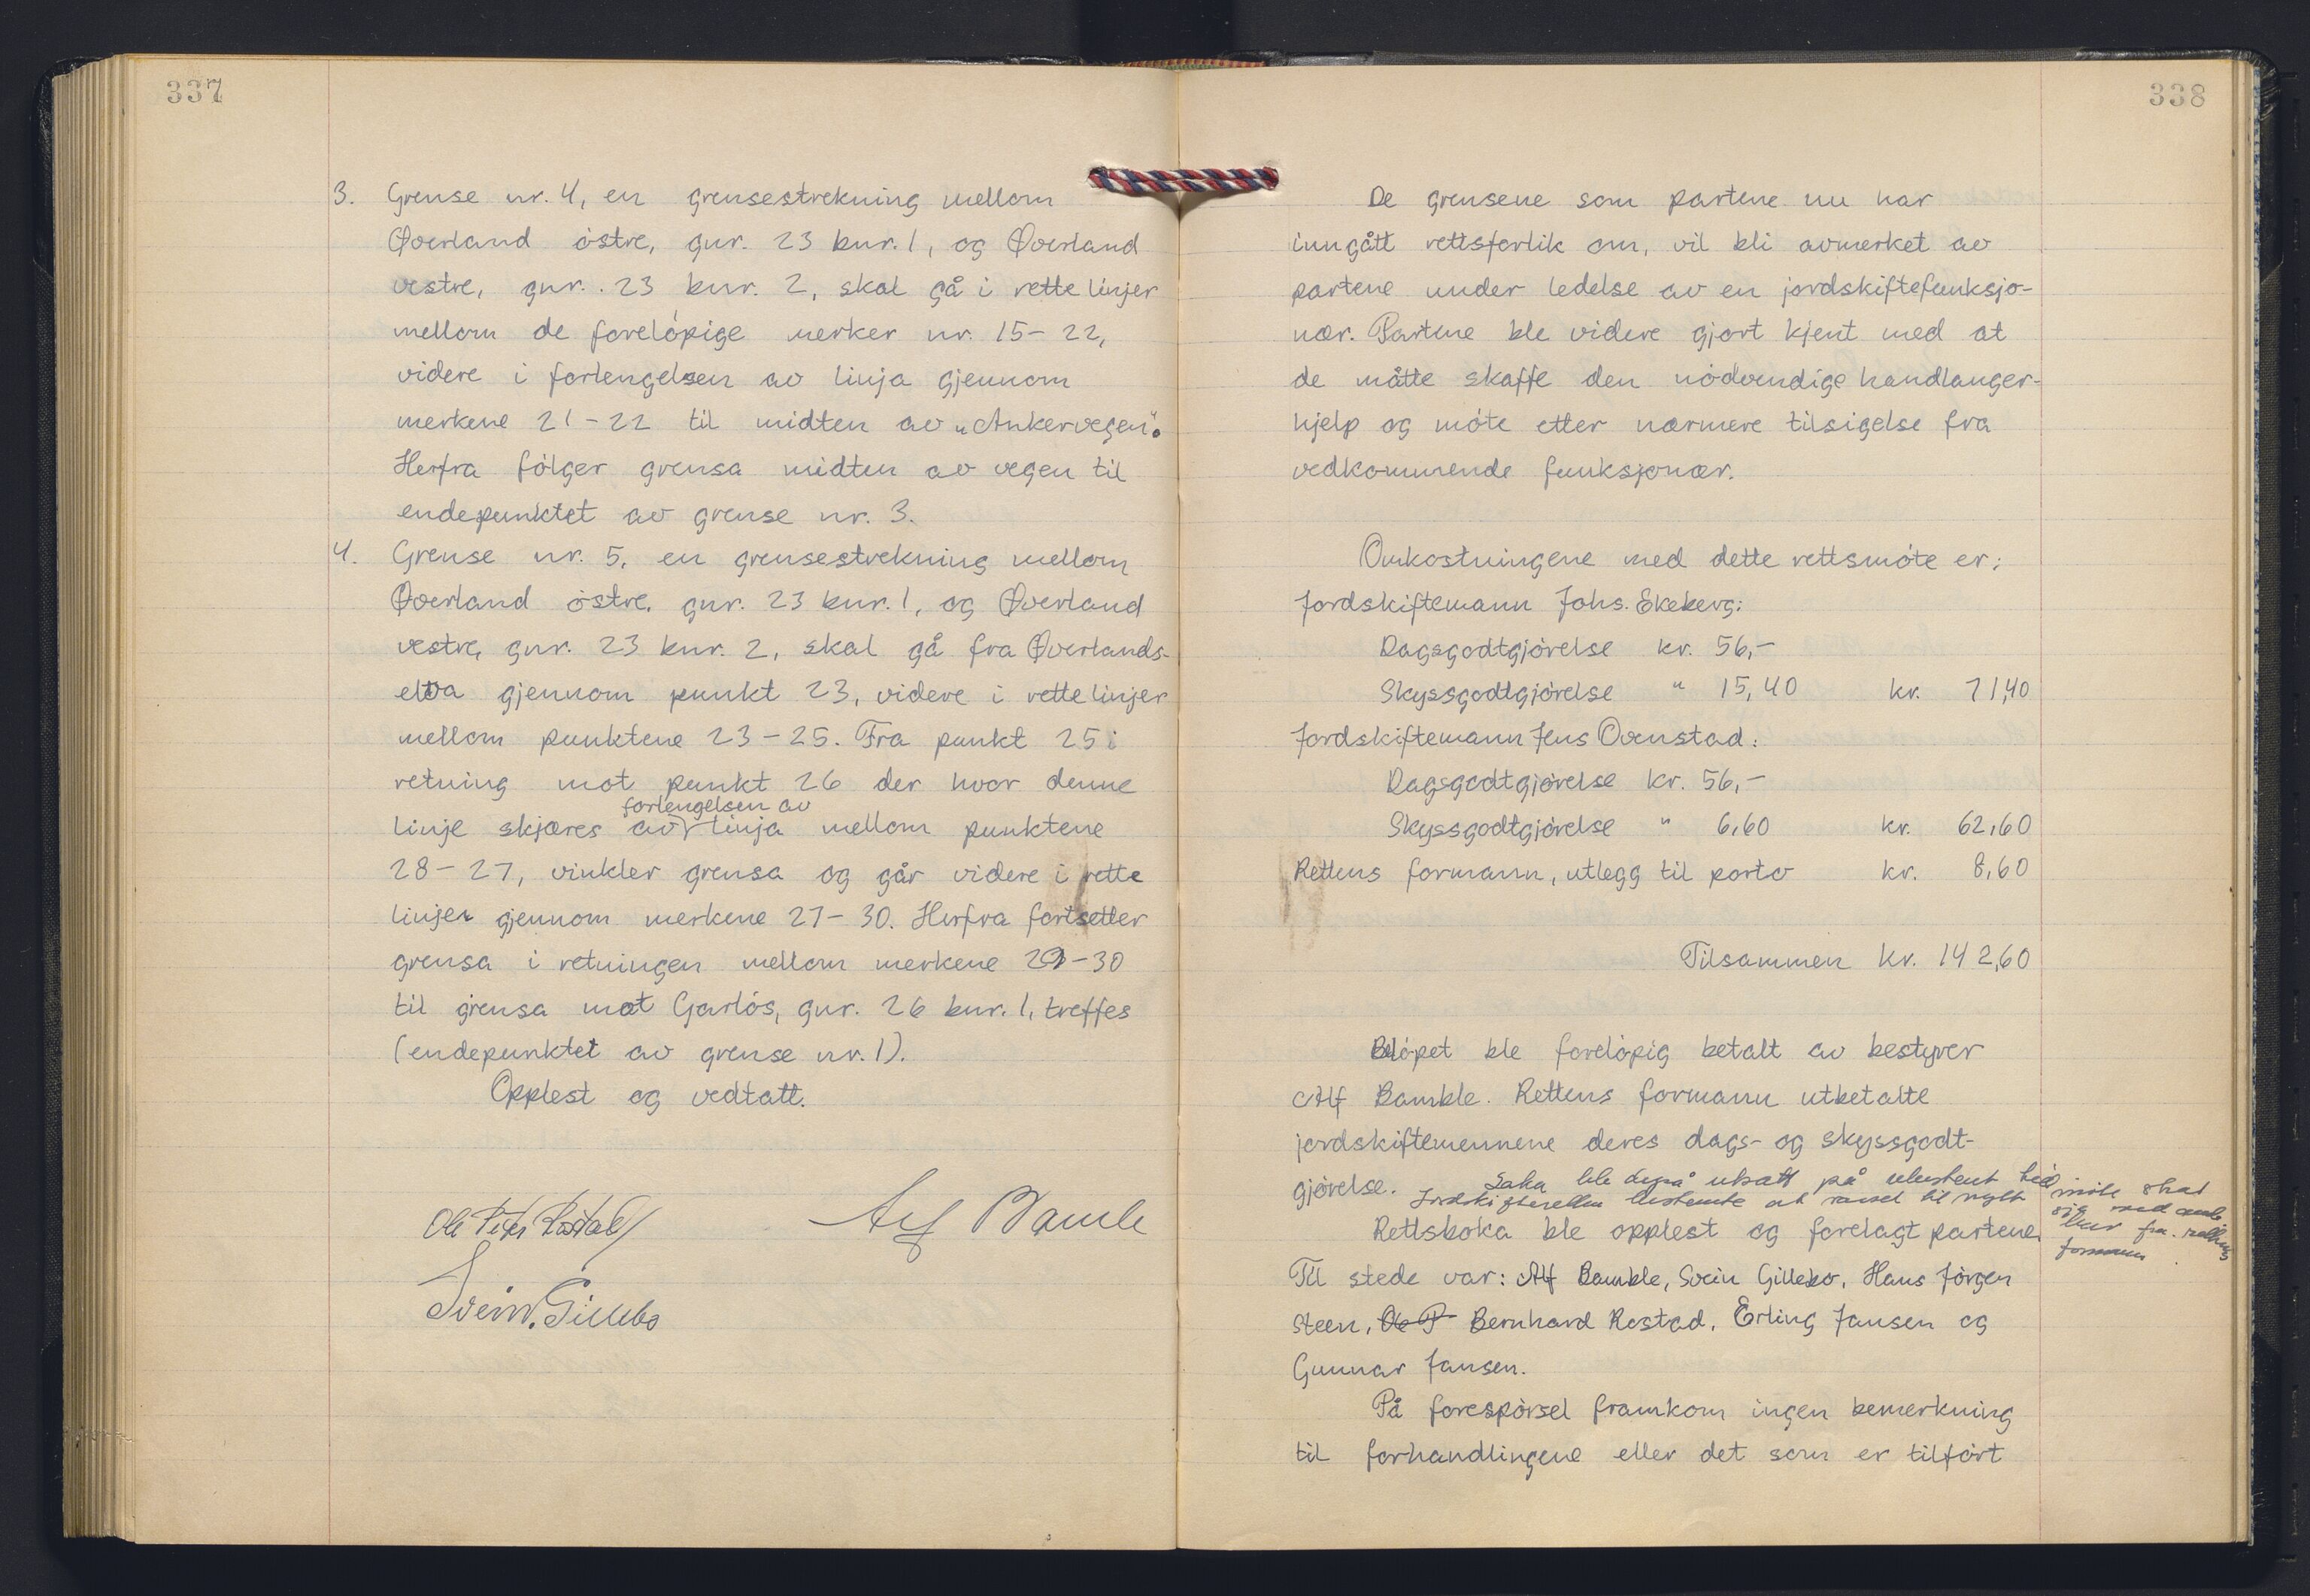 337
3. Grense nr. 4, en grensestrekning mellom
Øverland østre, gnr. 23 bnr. 1, og Øverland
vestre, gnr. 23 bnr. 2, skal gå i rette linjer
mellom de foreløpige merker nr. 15-22,
videre i forlengelsen av linja gjennom
merkene 21-22 til midten av „Ankervegen".
Herfra følger grensa midten av vegen til
endepunktet av grense nr. 3.
4. Grense nr. 5, en grensestrekning mellom
Øverland østre, gnr. 23 bnr. 1, og Øverland
vestre, gnr. 23 bnr. 2, skal gå fra Øverlands-
elva gjennom punkt 23, videre i rette linjer
mellom punktene 23-25. Fra punkt 25 i
retning mot punkt 26 der hvor denne
forlengelsen av
linje skjæres av linja mellom punktene
28-27, vinkler grensa og går videre i rette
linjer gjennom merkene 27-30. Herfra fortsetter
grensa i retningen mellom merkene 29-30
til grensa mot Garløs, gnr. 26 bnr. 1, treffes
(endepunktet av grense nr. 1).
Opplest og vedtatt.
Alf Bamble
Svein Gillebo
338
De grensene som partene nu har
inngått rettsforlik om, vil bli avmerket av
partene under ledelse av en jordskiftefunksjo-
nær. Partene ble videre gjort kjent med at
de måtte skaffe den nødvendige handlanger-
hjelp og møte etter nærmere tilsigelse fra
vedkommende funksjonær.
Omkostningene med dette rettsmøte er:
Jordskiftemann Johs. Ekeberg:
Dagsgodtgjørelse kr. 56,-
Skyssgodtgjørelse " 15,40 kr. 71,40
Jordskiftemann Jens Ovenstad:
Dagsgodtgjørelse kr. 56,-
Skyssgodtgjørelse " 6,60 kr. 62,60
Rettens formann, utlegg til porto kr. 8,60
Tilsammen kr. 142,60
Beløpet ble foreløpig betalt av bestyrer
Alf Bamble. Rettens formann utbetalte
jordskiftemennene deres dags- og skyssgodt-
gjørelse. Saka ble derpå utsatt på ubestemt tid
Jordskifteretten bestemte at varsel til nytt møte skal
skje med
brev fra rettens
formann
Rettsboka ble opplest og forelagt partene.
Til stede var: Alf Bamble, Svein Gillebo, Hans Jørgen
Steen, Ole P Bernhard Rostad, Erling Jansen og
Gunnar Jansen.
På forespørsel framkom ingen bemerkning
til forhandlingene eller det som er tilført